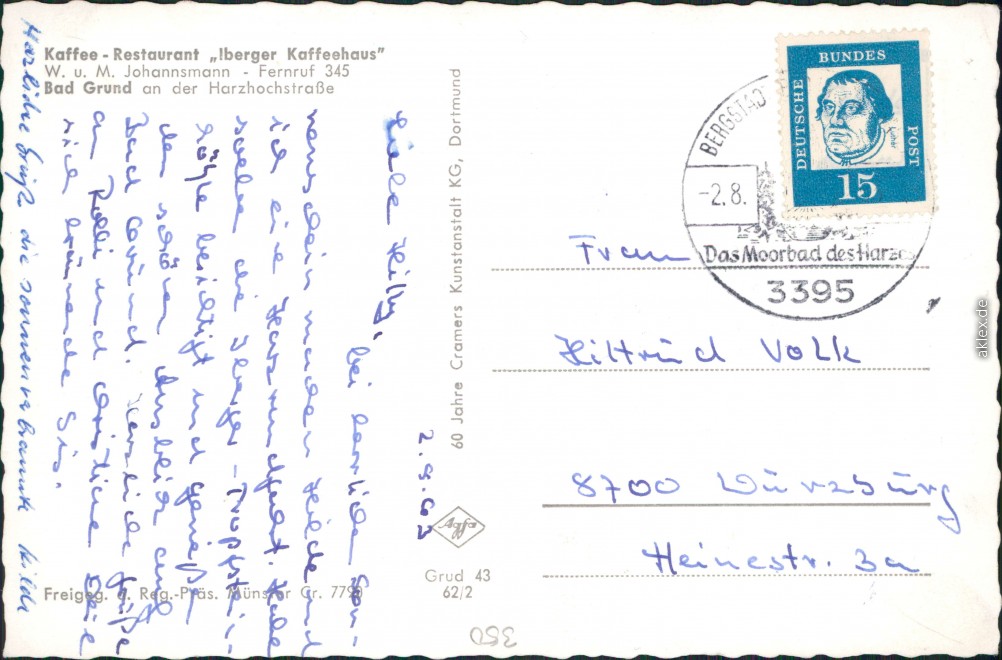 Kaffee-Restaurant „Iberger Kaffeehaus"
W. u. M. Johannsmann - Fernruf 345
Bad Grund an der Harzhochstraße
2.8.63
Liebe Hilly,
bei herrlichem Son-
nenschein machen Hilde und
ich eine Harzrundfahrt. Habe
soeben die Iberger-Tropfstein-
höhle besichtigt und genießen
den schönen Ausblick auf
Bad Grund. Herzliche Grüße
an Rolli und
sich bräunende Sis.
Herzliche Grüße die sonnenverbrannte Hilde
60 Jahre Cramers Kunstanstalt KG, Dortmund
agfa
Grud 43
62/2
Freigeg. d. Reg.-Präs. Münster Cr. 7790
350
DEUTSCHE
BUNDES
POST
Luther
15
BERGSTADT
-2.8.
Das Moorbad des Harzes
3395
Frau
Hiltrud Volk
8700 Würzburg
Heinestr. 3a
aklex.de